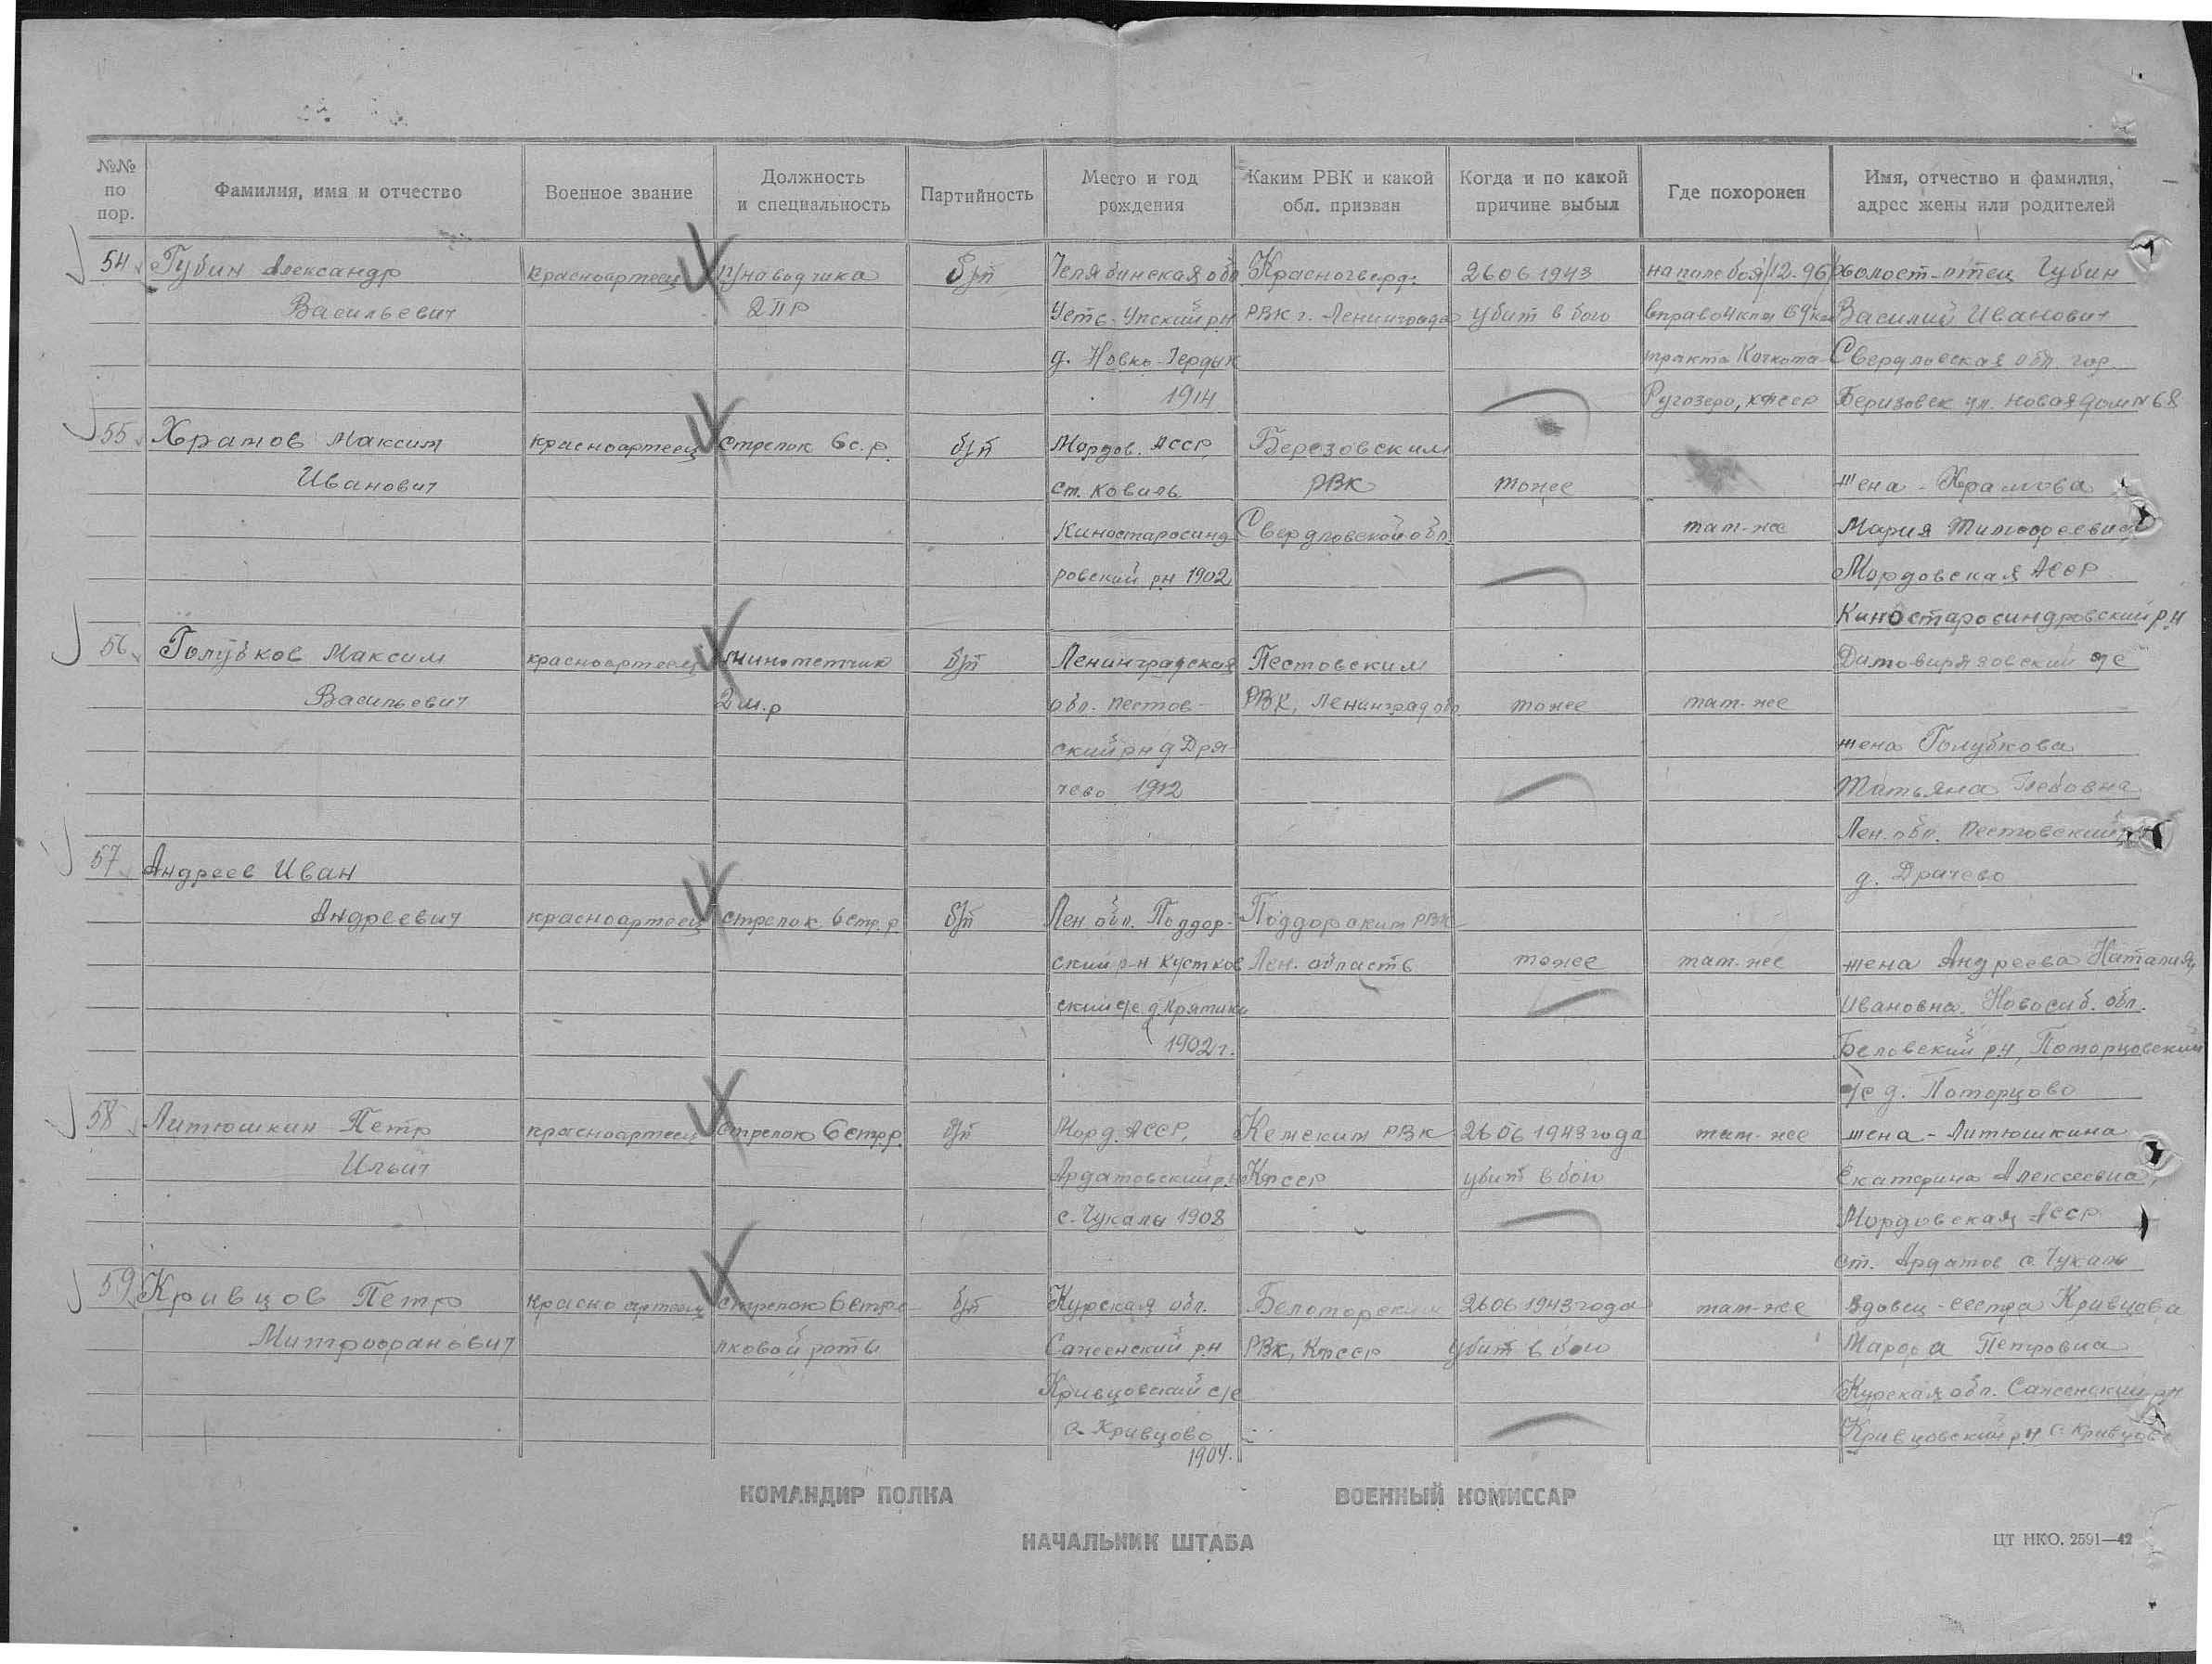 №№ по пор.
Фамилия, имя и отчество
Военное звание
Должность и специальность
Партийность
Место и год рождения
Каким РВК и какой обл. призван
Когда и по какой причине выбыл
Где похоронен
Имя, отчество и фамилия, адрес жены или родителей
54 Губин Александр
Васильевич
красноармеец
наводчика
2 ПР
б/п
Челябинская обл
Усть-Уйский р.н
1914
Красногвард.
РВК г. Ленинграда
26 06 1943
убит в бою
на поле боя
вправо 4 клм 69 клм
тракта Кочкома-
Ругозеро, КФССР
холост-отец Губин
Василий Иванович
Свердловская обл. гор.
Березовск ул. Новая дом № 68
55 Храмов Максим
Иванович
красноармеец
стрелок 6 с.р.
б/п
Мордов. АССР
ст. Ковыль
ровский рн 1902
Березовским
РВК
Свердловской обл
тоже
там-же
жена - Храмова
Мария Тимофеевна
Мордовская АССР
56 Голубков Максим
Васильевич
красноармеец
минометчик
2 м.р
б/п
Ленинградская
обл. Пестов-
ский рн д Дра-
чево 1912
Пестовским
РВК, Ленинград обл
тоже
там-же
жена Голубкова
Татьяна Глебовна
Лен. обл. Пестовский рн
д. Драчево
57 Андреев Иван
Андреевич
красноармеец
стрелок 6 стр.р.
б/п
Лен обл. Поддор-
ский р-н Кустков
ский с/с д.
1902 г.
Поддорским РВК
Лен. область
тоже
там-же
жена Андреева Наталия
Ивановна. Новосиб. обл.
Беловский р.н,
с/с д.
58 Литюшкин Петр
Ильич
красноармеец
Стрелок 6 стр.р.
б/п
Морд. АССР,
Ардатовский р.н
с. Чукалы 1908
Кемским РВК
КФССР
26 06 1943 года
убит в бою
там-же
жена - Литюшкина
Екатерина Алексеевна,
Мордовская АССР
ст. Ардатов с. Чукалы
59 Кривцов Петр
Митрофанович
красноармеец
Стрелок 6 стре-
лковой роты
б/п
Курская обл.
Саженский р.н
Кривцовский с/с
с. Кривцово
1904.
Беломорским
РВК, КФССР
26 06 1943 года
убит в бою
там-же
вдовец - сестра Кривцова
Марфа Петровна
Курская обл. Саженский рн
Кривцовский р.н с. Кривцово
КОМАНДИР ПОЛКА
ВОЕННЫЙ КОМИССАР
НАЧАЛЬНИК ШТАБА
ЦТ НКО. 2591—42